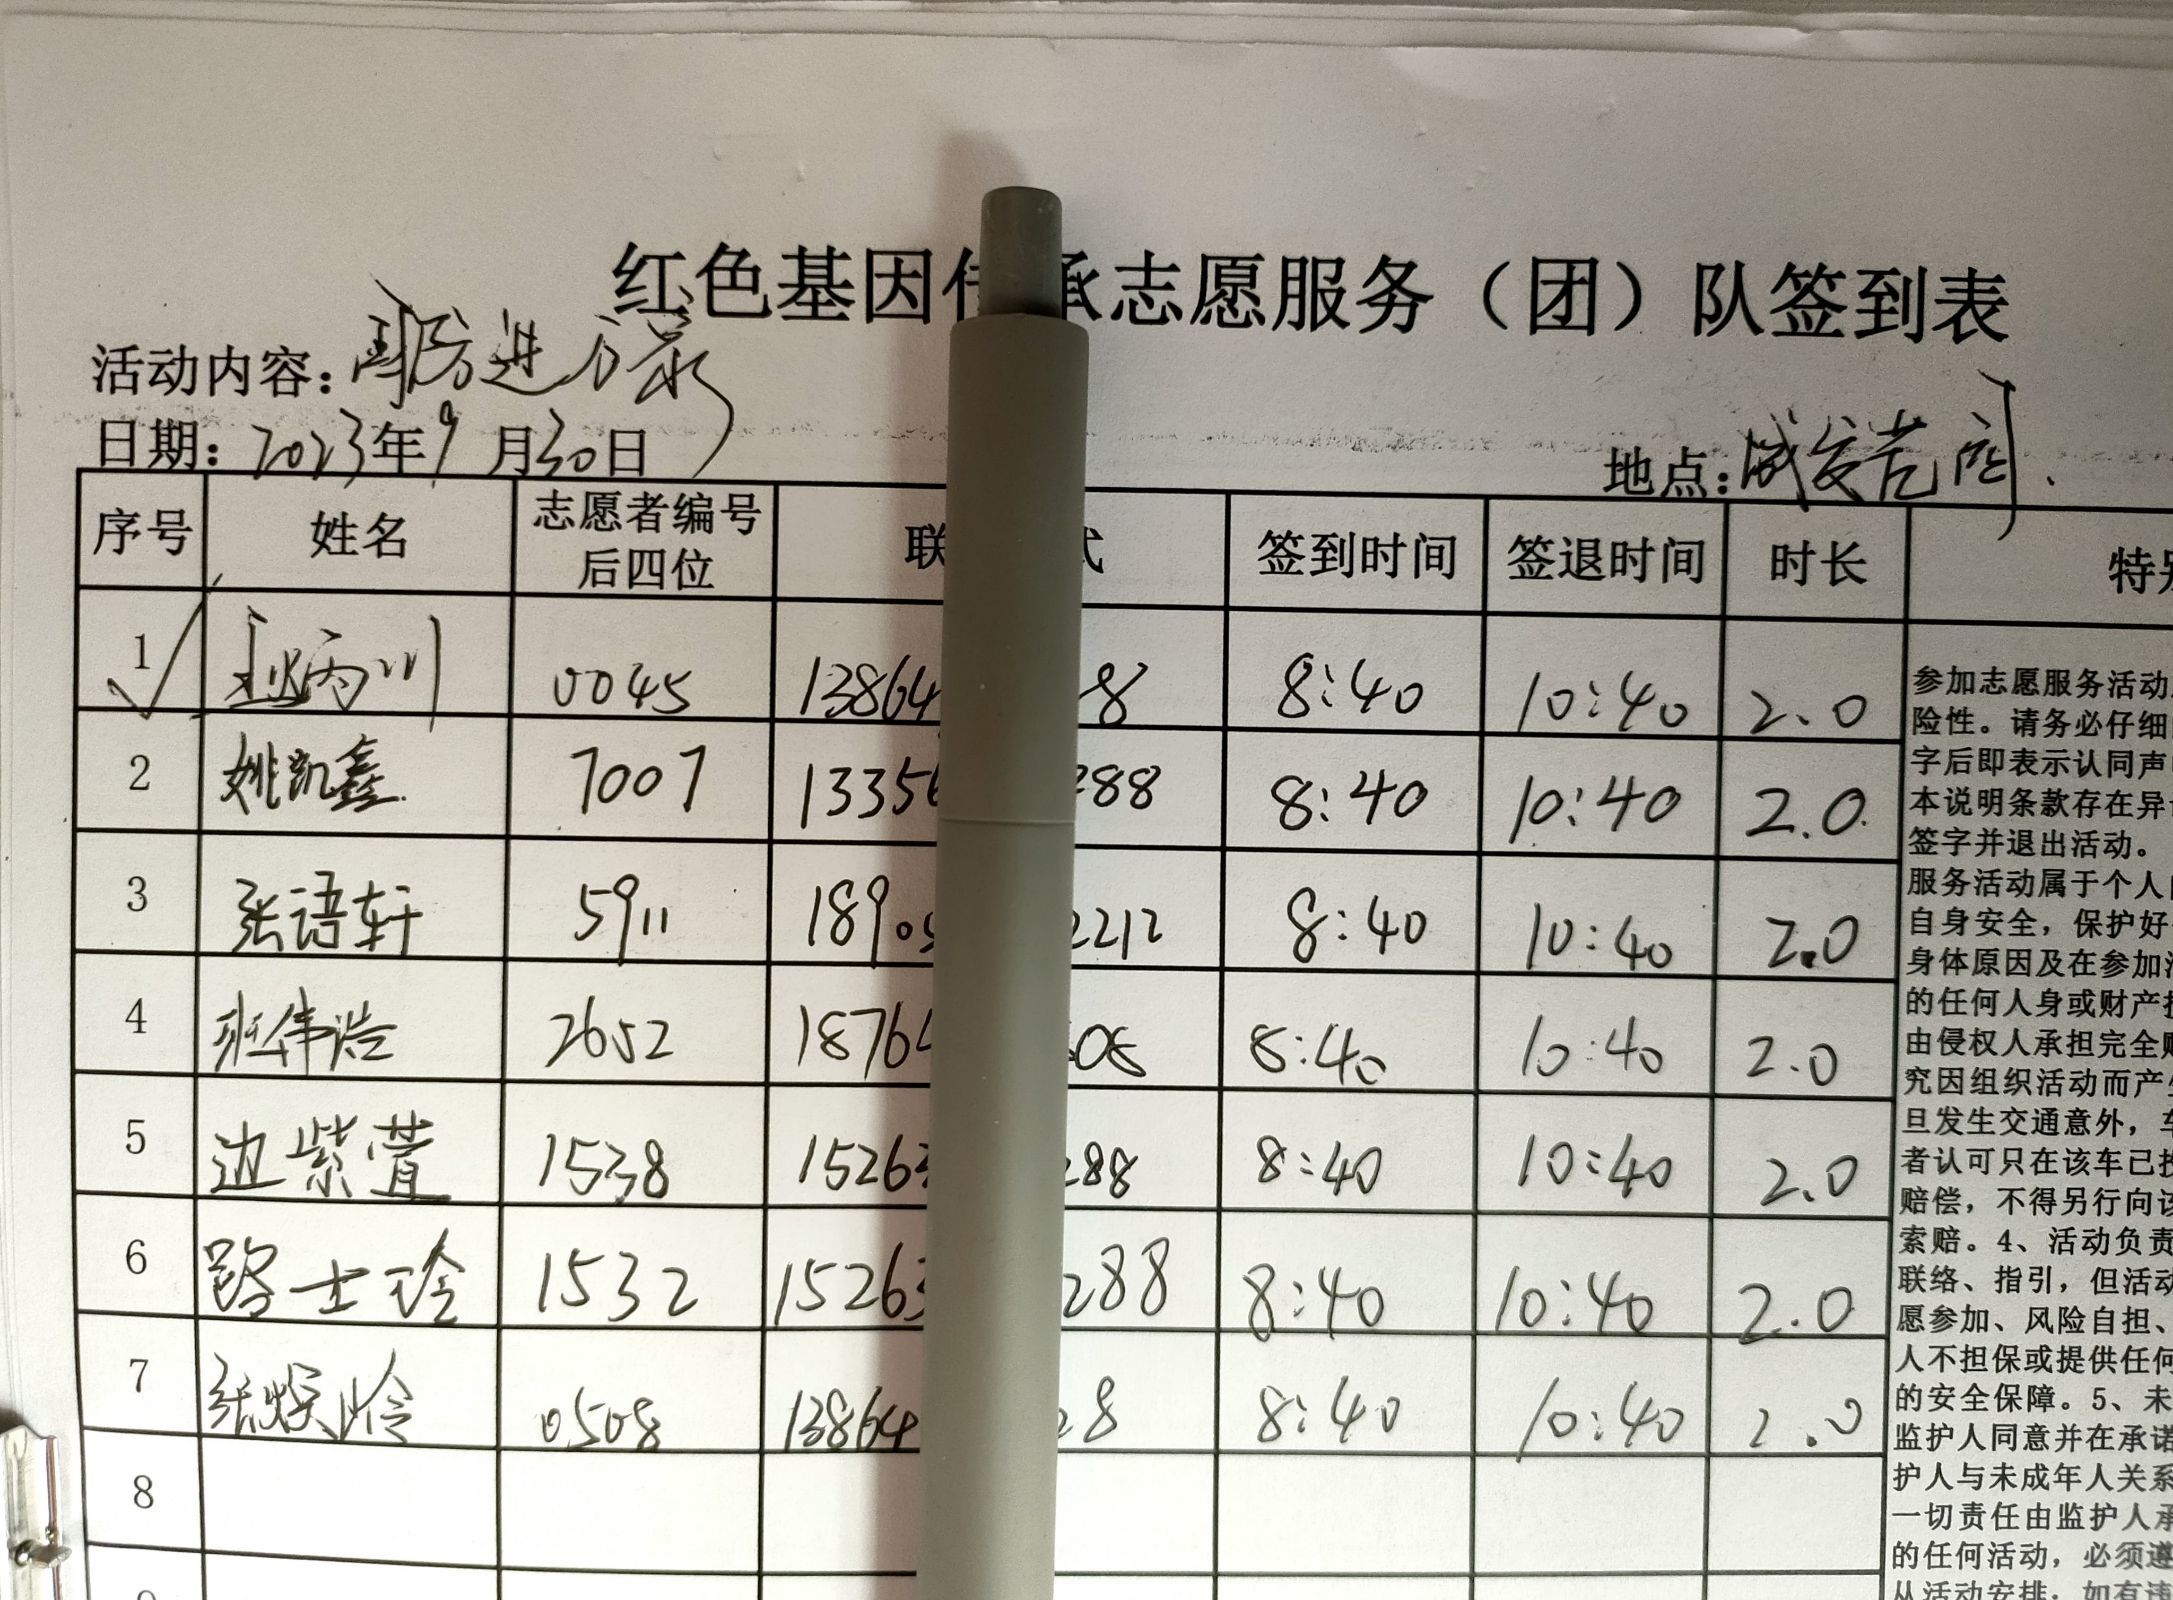 红色基因 承志愿服务（团）队签到表
活动内容：
日期：2023年9月30日
地点：
序号 姓名 志愿者编号后四位 联 式 签到时间 签退时间 时长 特别
1 0045 13864 8 8:40 10:40 2.0
2 姚凯鑫 7007 1335 288 8:40 10:40 2.0
3 张语轩 5911 1890 2212 8:40 10:40 2.0
4 班伟浩 2652 1876 08 8:40 10:40 2.0
5 边紫萱 1538 15263 288 8:40 10:40 2.0
6 路士玲 1532 15263 288 8:40 10:40 2.0
7 0508 13864 28 8:40 10:40 2.0
8
参加志愿服务活动
险性。请务必仔细
字后即表示认同声
本说明条款存在异
签字并退出活动。
服务活动属于个人
自身安全，保护好
身体原因及在参加
的任何人身或财产
由侵权人承担完全
究因组织活动而产
旦发生交通意外，
者认可只在该车已
赔偿，不得另行向该
索赔。4、活动负责
联络、指引，但活动
愿参加、风险自担、
人不担保或提供任何
的安全保障。5、未
监护人同意并在承诺
护人与未成年人关系
一切责任由监护人承
的任何活动，必须遵
从活动安排；如有违